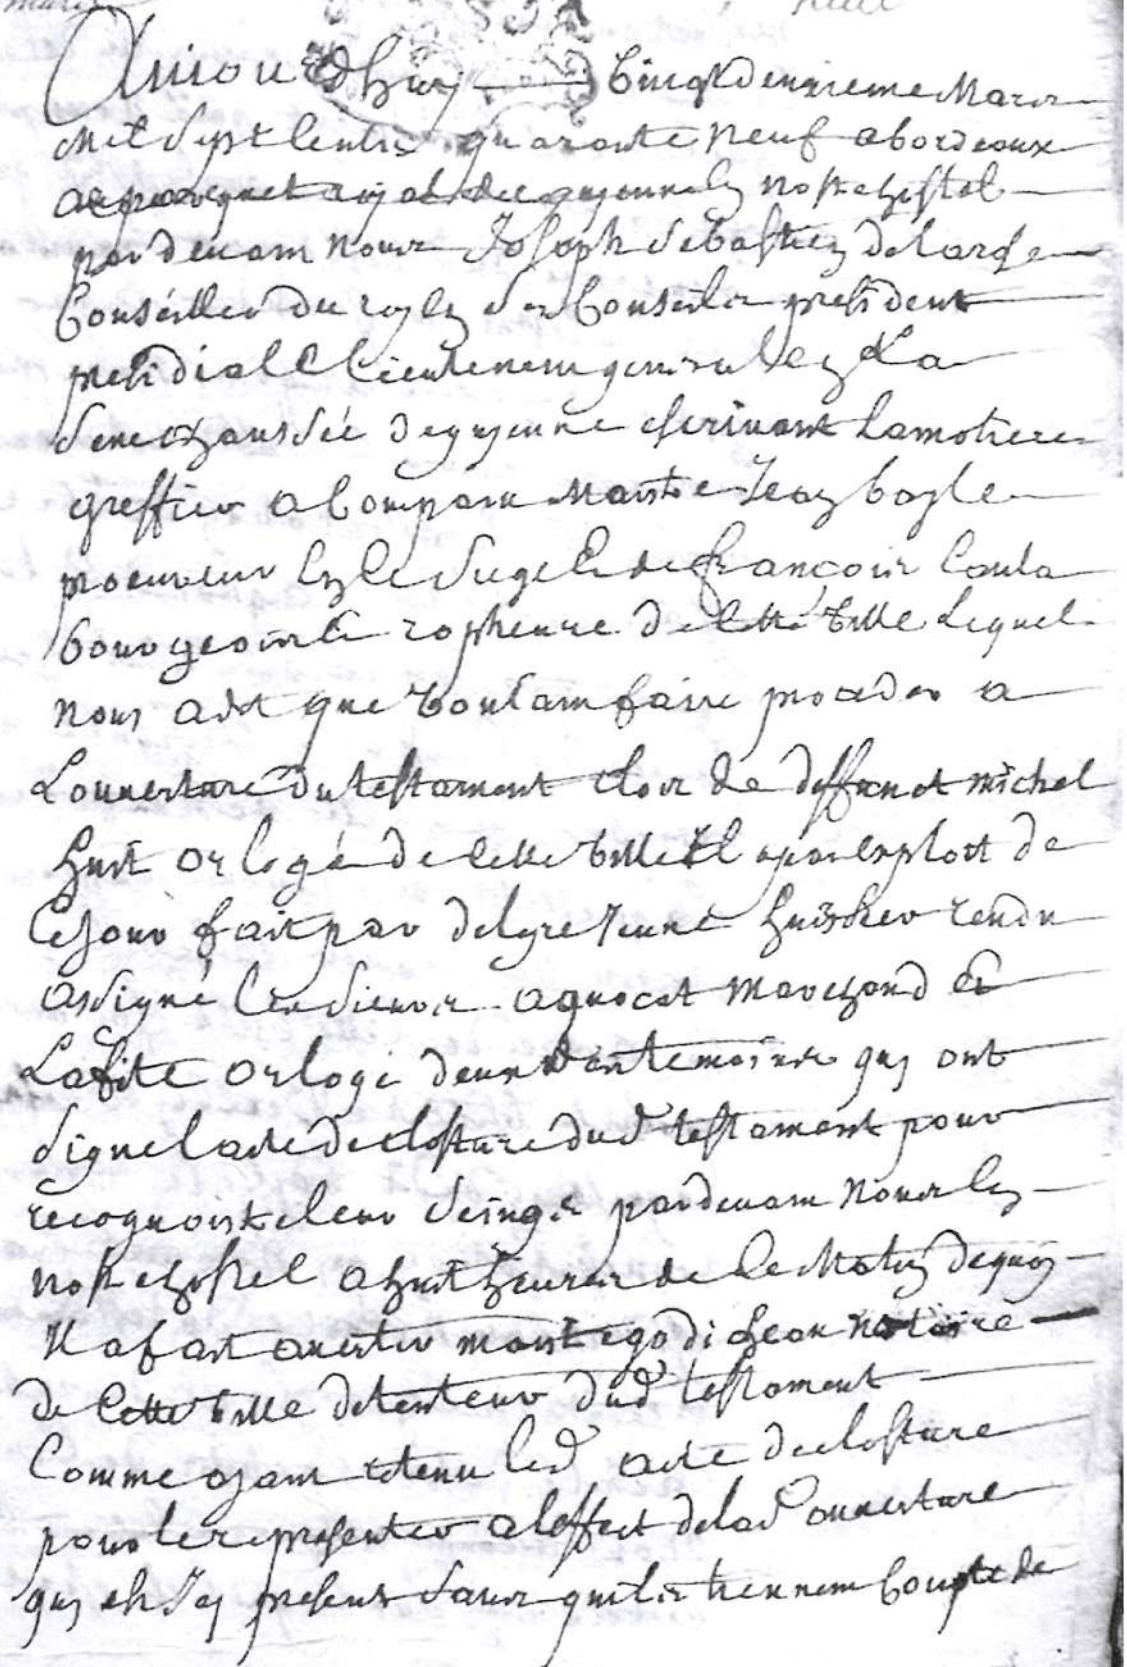 Aujourdhuy vingt deuxieme Mars
Mil sept cents quarante neuf a bordeaux
en nostre hostel
par devant nous Joseph Sebastien de Larose
Conseiller du roy en ses Conseils president
presidial Lieutenent general en La
Senechaussée de guyenne escrivant Lamotiere
greffier a Comparu Maistre Jean bayle
procureur en Ce siege de françois Coula
bourgeois de cette ville Lequel
nous a dit que voulant faire proceder a
Louverture du testament clos de deffunct michel
huit orlogé de Cette ville il a par exploit de
Ce jour fait par delyre jeune huissier rendu
assigné Les sieurs avocat marchand et
Lafite orlogé deux des temoins quy ont
signe l acte de closture dud testament pour
recognoistre leur seings pardevant nous en
nostre hostel a huit heures de Ce Matin de quoy
Il a fait avertir monst notaire
de Cette ville detenteur dud testament
Comme ayant retenu led acte de closture
pour le representer a l effect de lad ouverture
quy est Icy present sans quils tiennent Compte de